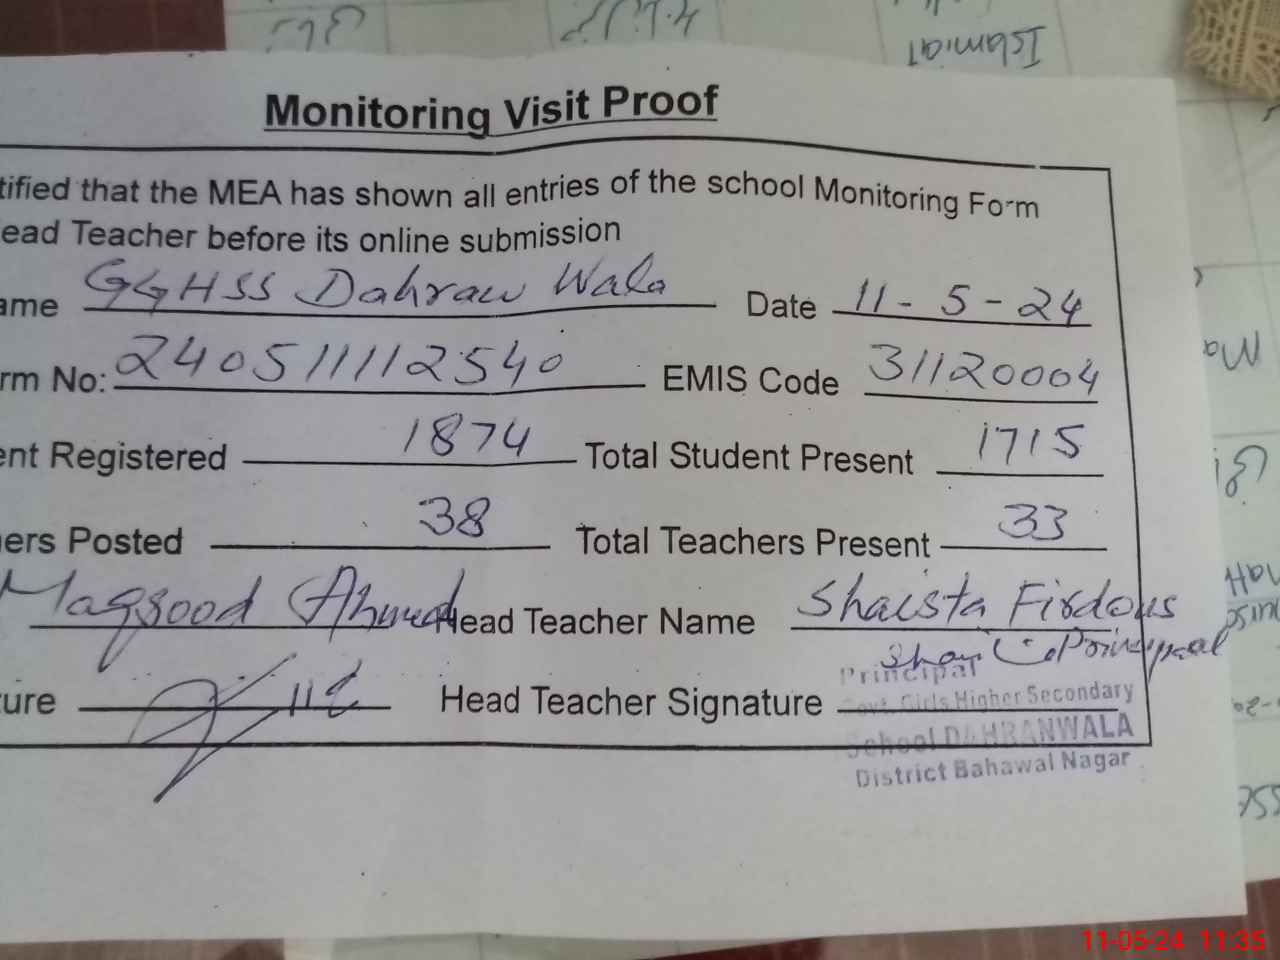 Islamiat
Monitoring Visit Proof
tified that the MEA has shown all entries of the school Monitoring Form
ead Teacher before its online submission
ame GGHSS Dahran Wala Date 11-5-24
rm No: 240511112540 EMIS Code 31120004
ent Registered 1874 Total Student Present 1715
ers Posted 38 Total Teachers Present 33
Maqsood Ahmed Head Teacher Name Shaista Firdous
Principal
ture Head Teacher Signature
Principal
Govt. Girls Higher Secondary
School DAHRANWALA
District Bahawal Nagar
11-05-24 11:35